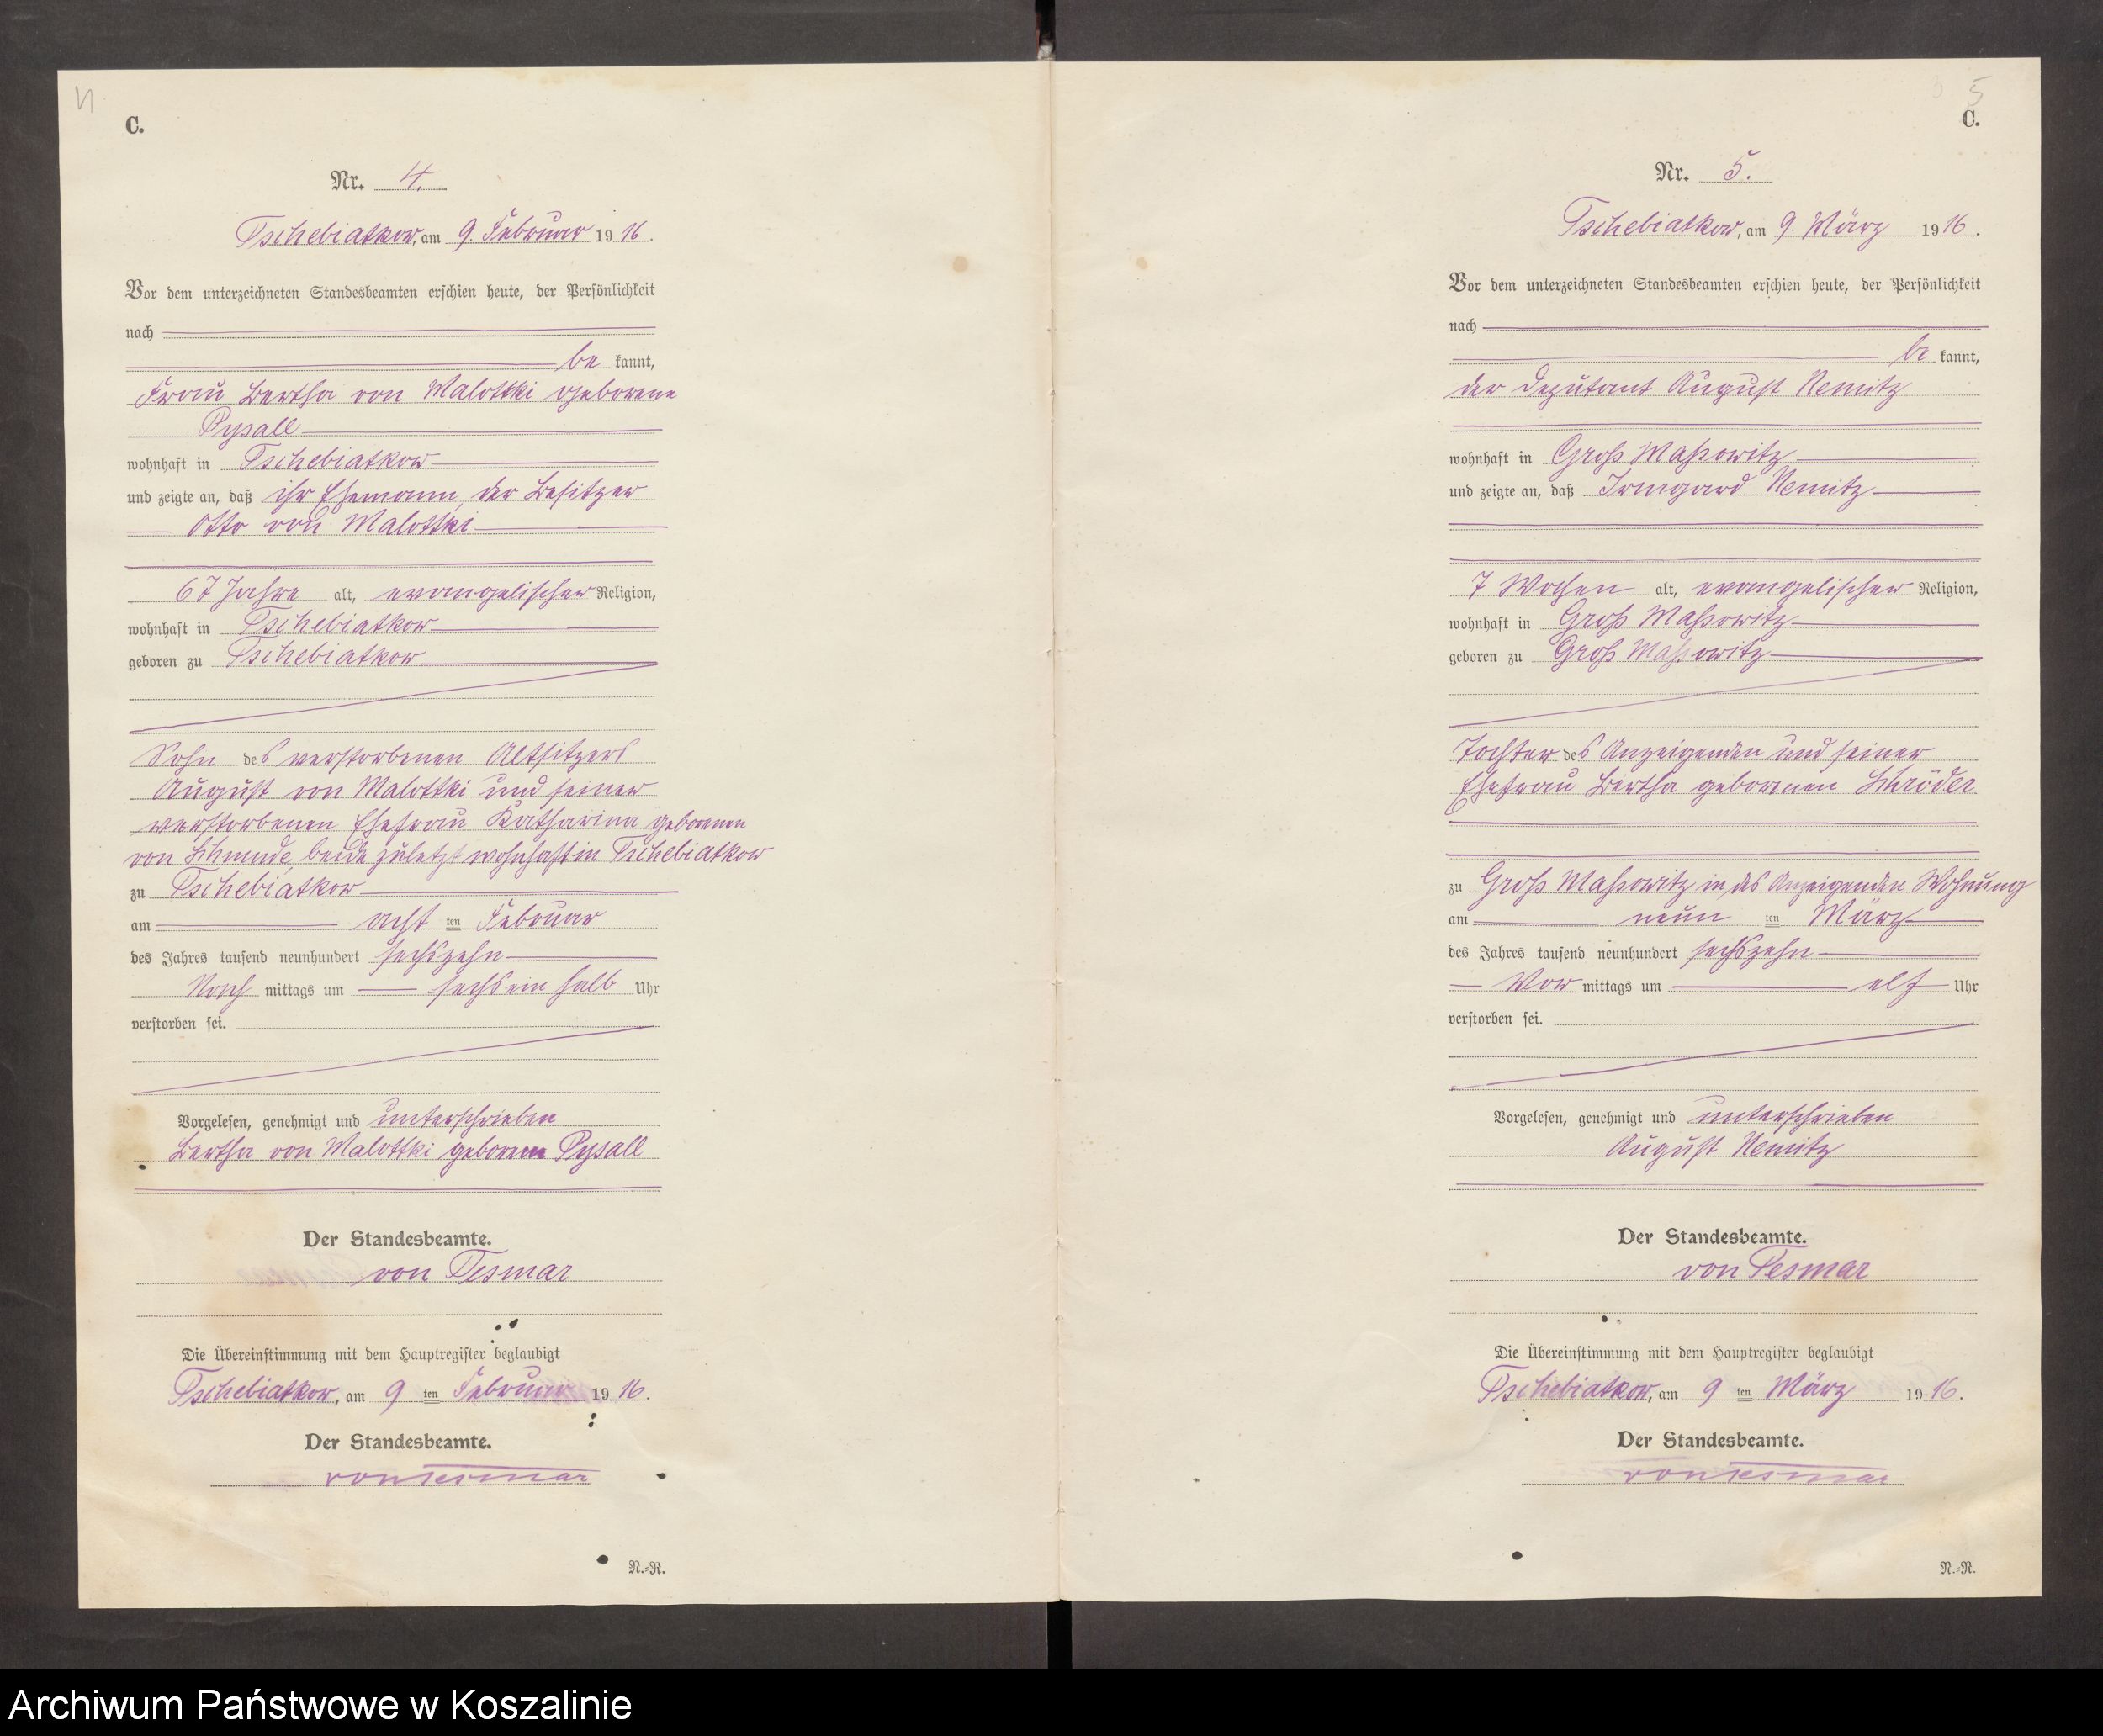 C.
Nr. 4.
Tschebiatkow, am 9. Februar 1916.
Vor dem unterzeichneten Standesbeamten erschien heute, der Persönlichkeit
nach
be kannt,
Frau Bertha von Malottki geborene
Pysall
wohnhaft in Tschebiatkow
und zeigte an, daß ihr Ehemann, der Besitzer
Otto von Malottki
67 Jahre alt, evangelischer Religion,
wohnhaft in Tschebiatkow
geboren zu Tschebiatkow
Sohn des verstorbenen Altsitzers
August von Malottki und seiner
verstorbenen Ehefrau Katharina geborenen
von Schmude, beide zuletzt wohnhaft in Tschebiatkow
zu Tschebiatkow
am acht ten Februar
des Jahres tausend neunhundert sechszehn
Nach mittags um sechs ein halb Uhr
verstorben sei.
Vorgelesen, genehmigt und unterschrieben
Bertha von Malottki geborene Pysall
Der Standesbeamte.
von Tesmar
Die Übereinstimmung mit dem Hauptregister beglaubigt
Tschebiatkow, am 9 ten Februar 1916.
Der Standesbeamte.
von Tesmar
N.-R.
5
C.
Nr. 5.
Tschebiatkow, am 9. März 1916.
Vor dem unterzeichneten Standesbeamten erschien heute, der Persönlichkeit
nach
be kannt,
der Deputant August Nemitz
wohnhaft in Groß Massowitz
und zeigte an, daß Irmgard Nemitz
7 Wochen alt, evangelischer Religion,
wohnhaft in Groß Massowitz
geboren zu Groß Massowitz
Tochter des Anzeigenden und seiner
Ehefrau Bertha geborenen Schröder
zu Groß Massowitz in des Anzeigenden Wohnung
am neun ten März
des Jahres tausend neunhundert sechszehn
Vor mittags um elf Uhr
verstorben sei.
Vorgelesen, genehmigt und unterschrieben
August Nemitz
Der Standesbeamte.
von Tesmar
Die Übereinstimmung mit dem Hauptregister beglaubigt
Tschebiatkow, am 9 ten März 1916.
Der Standesbeamte.
von Tesmar
N.-R.
Archiwum Państwowe w Koszalinie